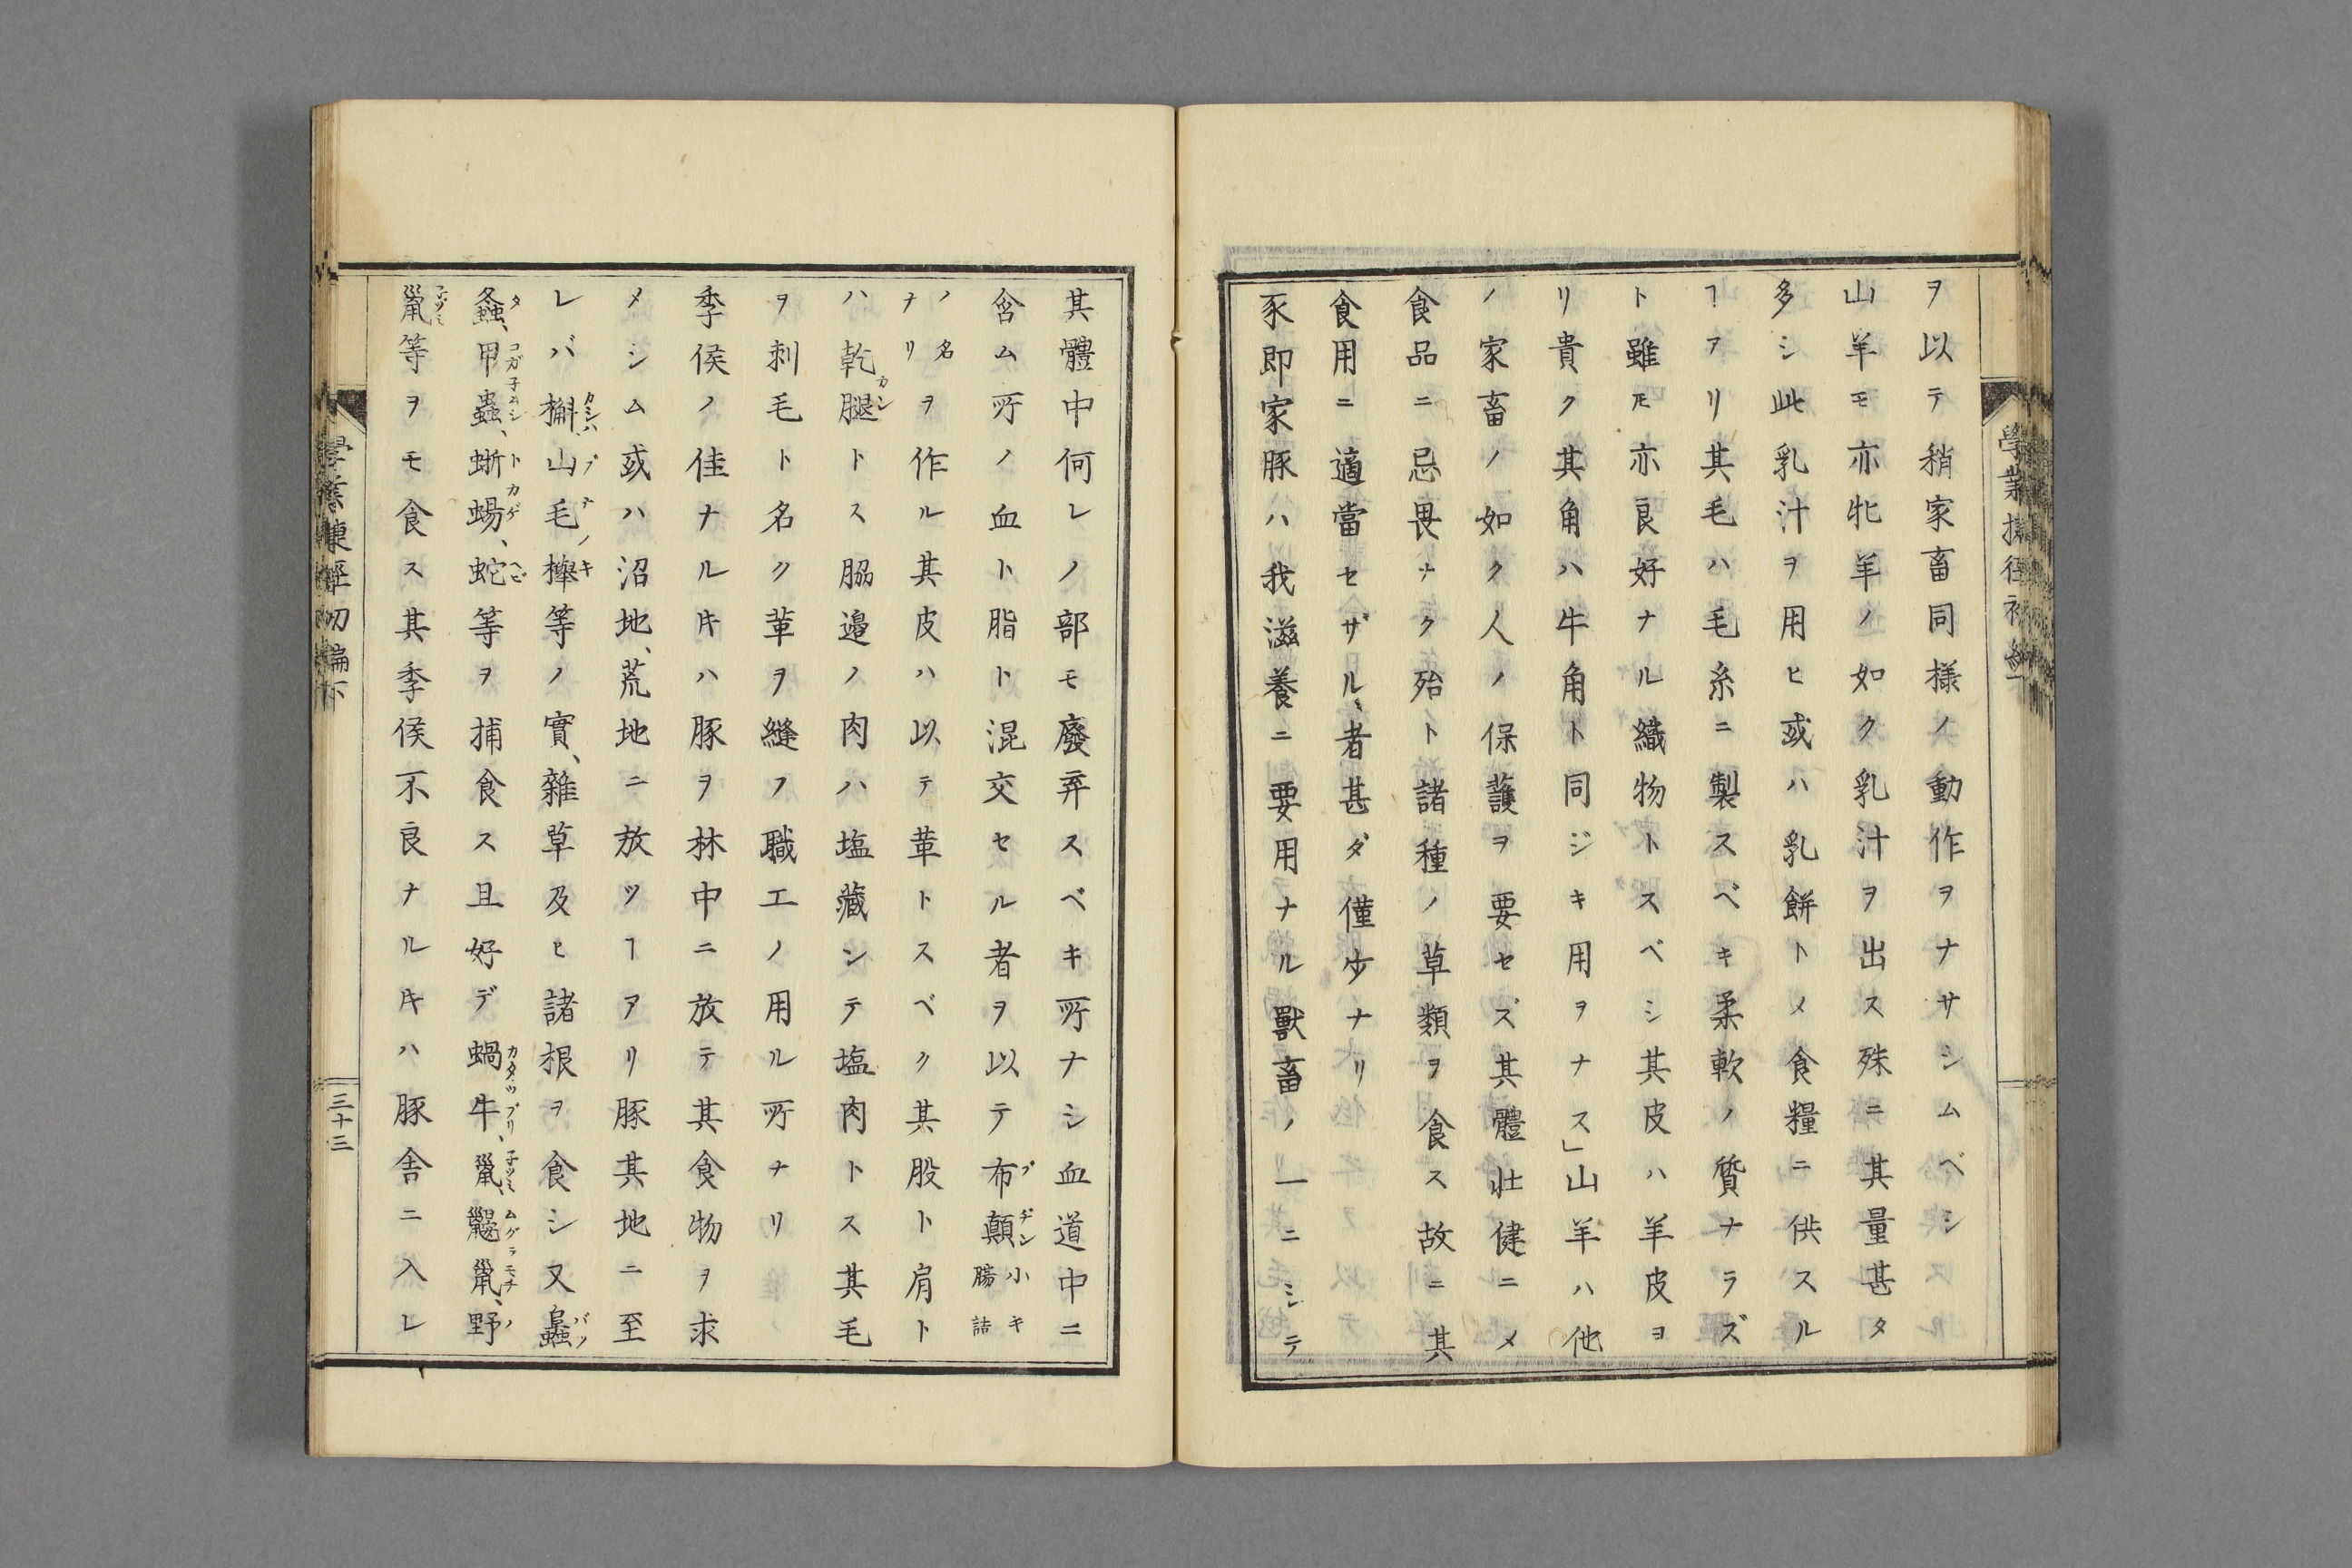 ヲ以テ稍家畜同樣ノ動作ヲナサシムベシ
山羊モ亦牝羊ノ如ク乳汁ヲ出ス殊ニ其量甚タ
多シ此乳汁ヲ用ヒ或ハ乳餅トメ食糧ニ供スル
ヿアリ其毛ハ毛糸ニ製スベキ柔軟ノ質ナラズ
ト雖𪜈亦良好ナル織物トスベシ其皮ハ羊皮ヨ
リ貴ク其角ハ牛角ト同ジキ用ヲナス」山羊ハ他
ノ家畜ノ如ク人ノ保護ヲ要セズ其體壯健ニメ
食品ニ忌畏ナク殆ト諸種ノ草類ヲ食ス故ニ其
食用ニ適當セザル、者甚ダ僅少ナリ
豕即家豚ハ我滋養ニ要用ナル獸畜ノ一ニシテ
其體中何レノ部モ廢弃スベキ所ナシ血道中ニ
含ム所ノ血ト脂ト混交セル者ヲ以テ布顛小キ腸詰
ノ名ナリヲ作ル其皮ハ以テ革トスベク其股ト肩ト
ハ乾腿トス脇邊ノ肉ハ塩藏シテ塩肉トス其毛
ヲ刺毛ト名ク革ヲ縫フ職工ノ用ル所ナリ
季候ノ佳ナル片ハ豚ヲ林中ニ放テ其食物ヲ求
メシム或ハ沼地、荒地ニ放ツヿアリ豚其地ニ至
レバ槲、山毛欅等ノ實、雜草及ヒ諸根ヲ食シ又蟁
螽、甲蟲、蜥蜴、蛇等ヲ捕食ス且好デ蝸牛、鼠、鼴鼠、野
鼠等ヲモ食ス其季候不良ナル片ハ豚舍ニ入レ
三十三